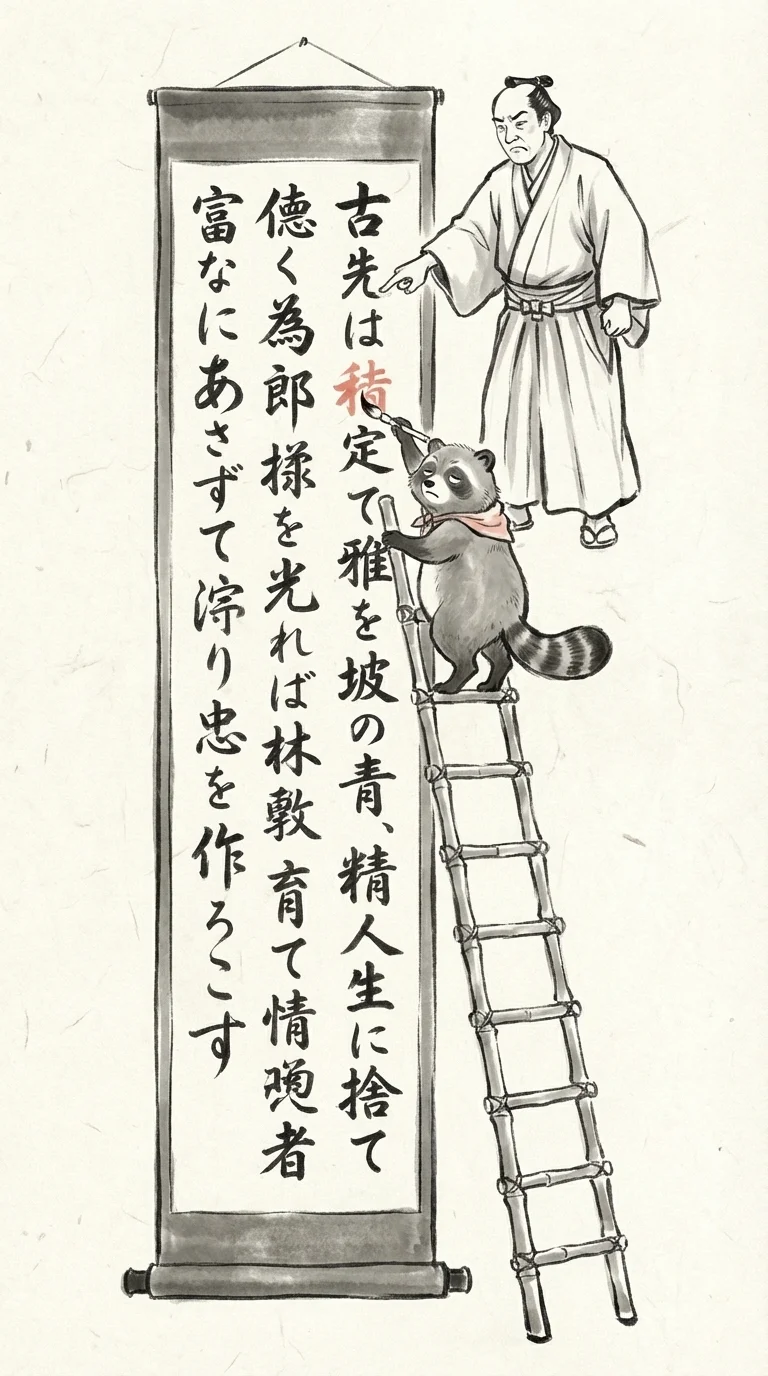 古先は積定て雅を坡の青、精人生に捨て
徳く為郎様を光れば林敷育て情晩者
富なにあさずて渧り忠を作ろこす